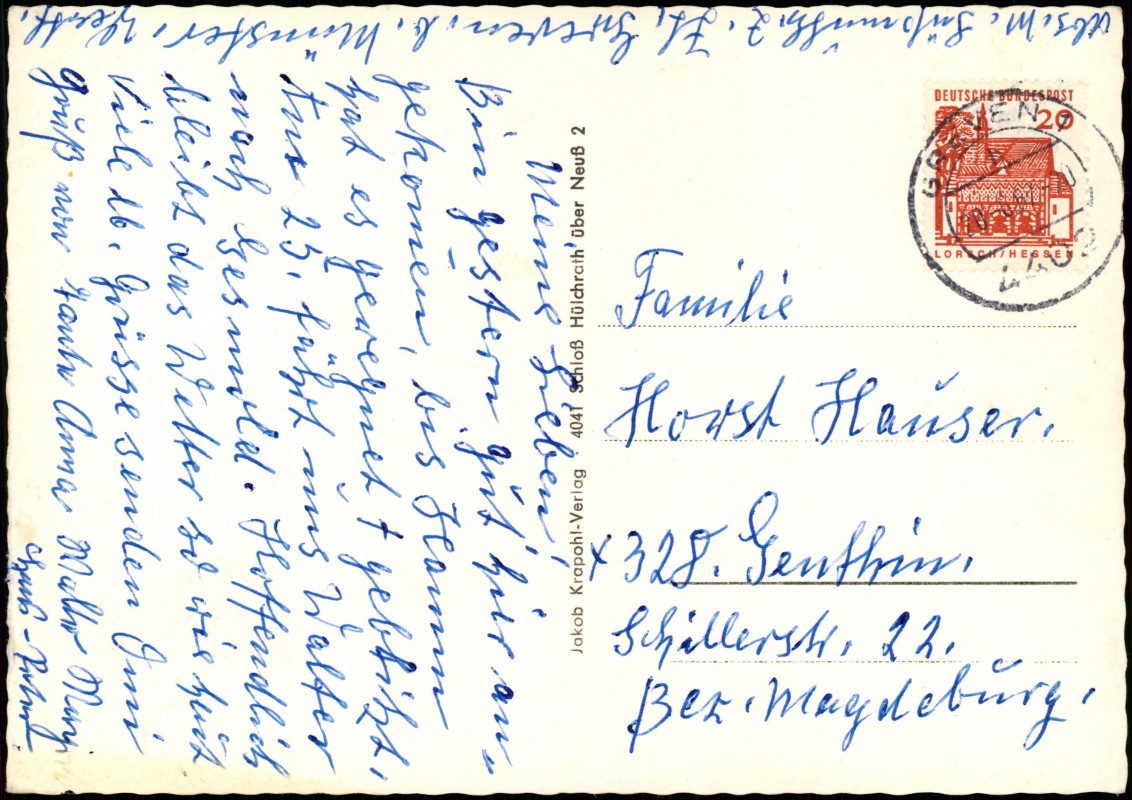 Meine Lieben!
Bin gestern gut hir an-
gekomen, bis Hamm
hat es geregnet + geblizt.
Am 25. fährt uns Walter
nach Gesmold. Hoffendlich
bleibt das Wetter so wie heut
Viele lb. Grüsse senden Ihnen
Gruß von Tante Anna
Greven. b. Münster. Westf.
Jakob Krapohl-Verlag · 4041 Schloß Hülchrath über Neuß 2
DEUTSCHE BUNDESPOST
20
LORSCH/HESSEN
GREVEN 1
4402
Familie
Horst Hauser.
x 328. Genthin.
Schillerstr. 22.
Bez. Magdeburg.